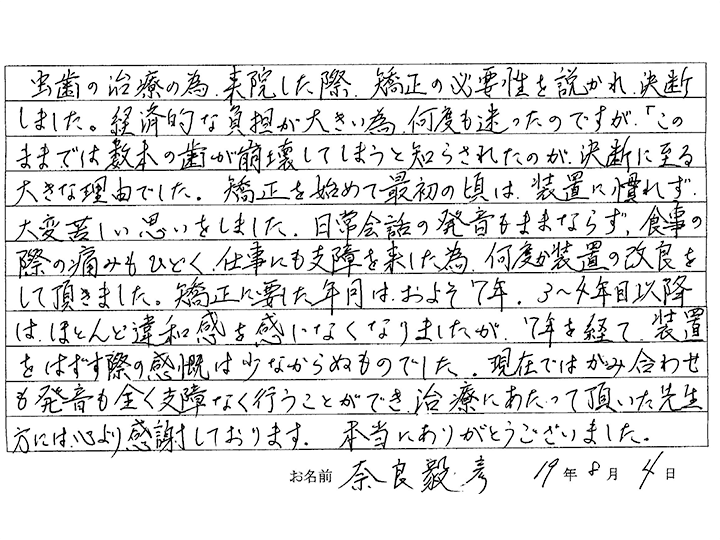 虫歯の治療の為、来院した際、矯正の必要性を説かれ、決断
しました。経済的な負担が大きい為、何度も迷ったのですが、「この
ままでは数本の歯が崩壊してしまうと知らされたのが、決断に至る
大きな理由でした。矯正を始めて最初の頃は、装置に慣れず、
大変苦しい思いをしました。日常会話の発音もままならず、食事の
際の痛みもひどく、仕事にも支障を来した為、何度か装置の改良を
して頂きました。矯正に要した年月は、およそ7年。3〜4年目以降
は、ほとんど違和感を感じなくなりましたが、7年を経て、装置
をはずす際の感慨は少なからぬものでした。現在ではがみ合わせ
も発音も全く支障なく行うことができ、治療にあたって頂いた先生
方には、心より感謝しております。本当にありがとうございました。
お名前 奈良毅彦 19年8月4日